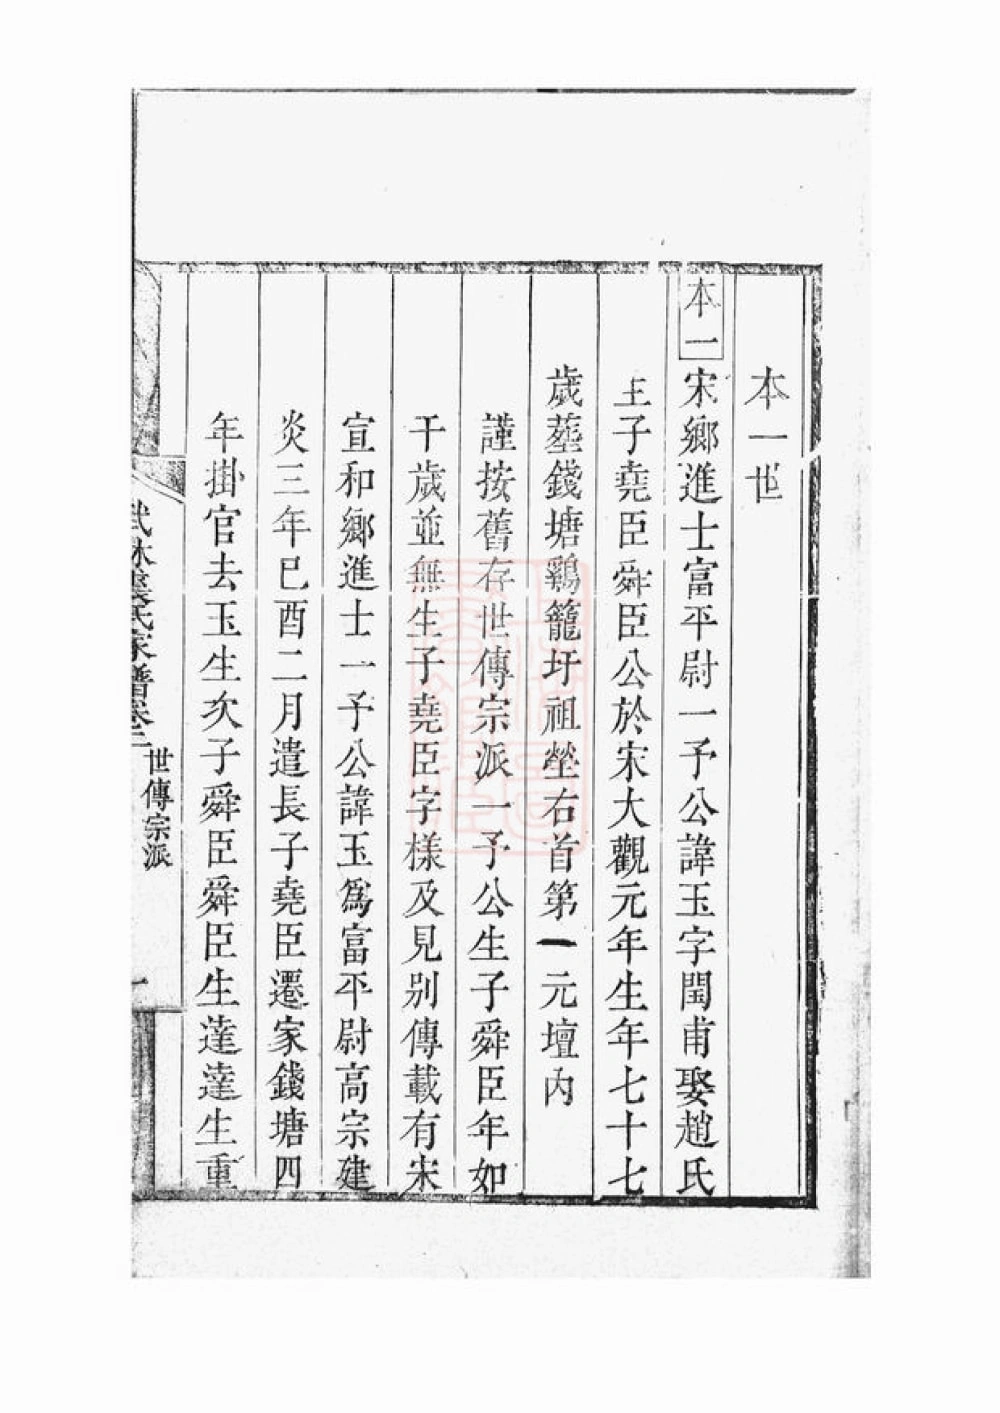 本一世
本一 宋鄉進士富平尉一予公諱玉字閏甫娶趙氏
王子堯臣舜臣公於宋大觀元年生年七十七
歲塟錢塘鷄籠圩祖塋右首第一元壇內
謹按舊存世傳宗派一予公生子舜臣年如
干歲並無生子堯臣字樣及見別傳載有宋
宣和鄉進士一予公諱玉為富平尉高宗建
炎三年巳酉二月遣長子堯臣遷家錢塘四
年掛官去玉生次子舜臣舜臣生達達生重
武林 氏家譜卷二
世傳宗派
一